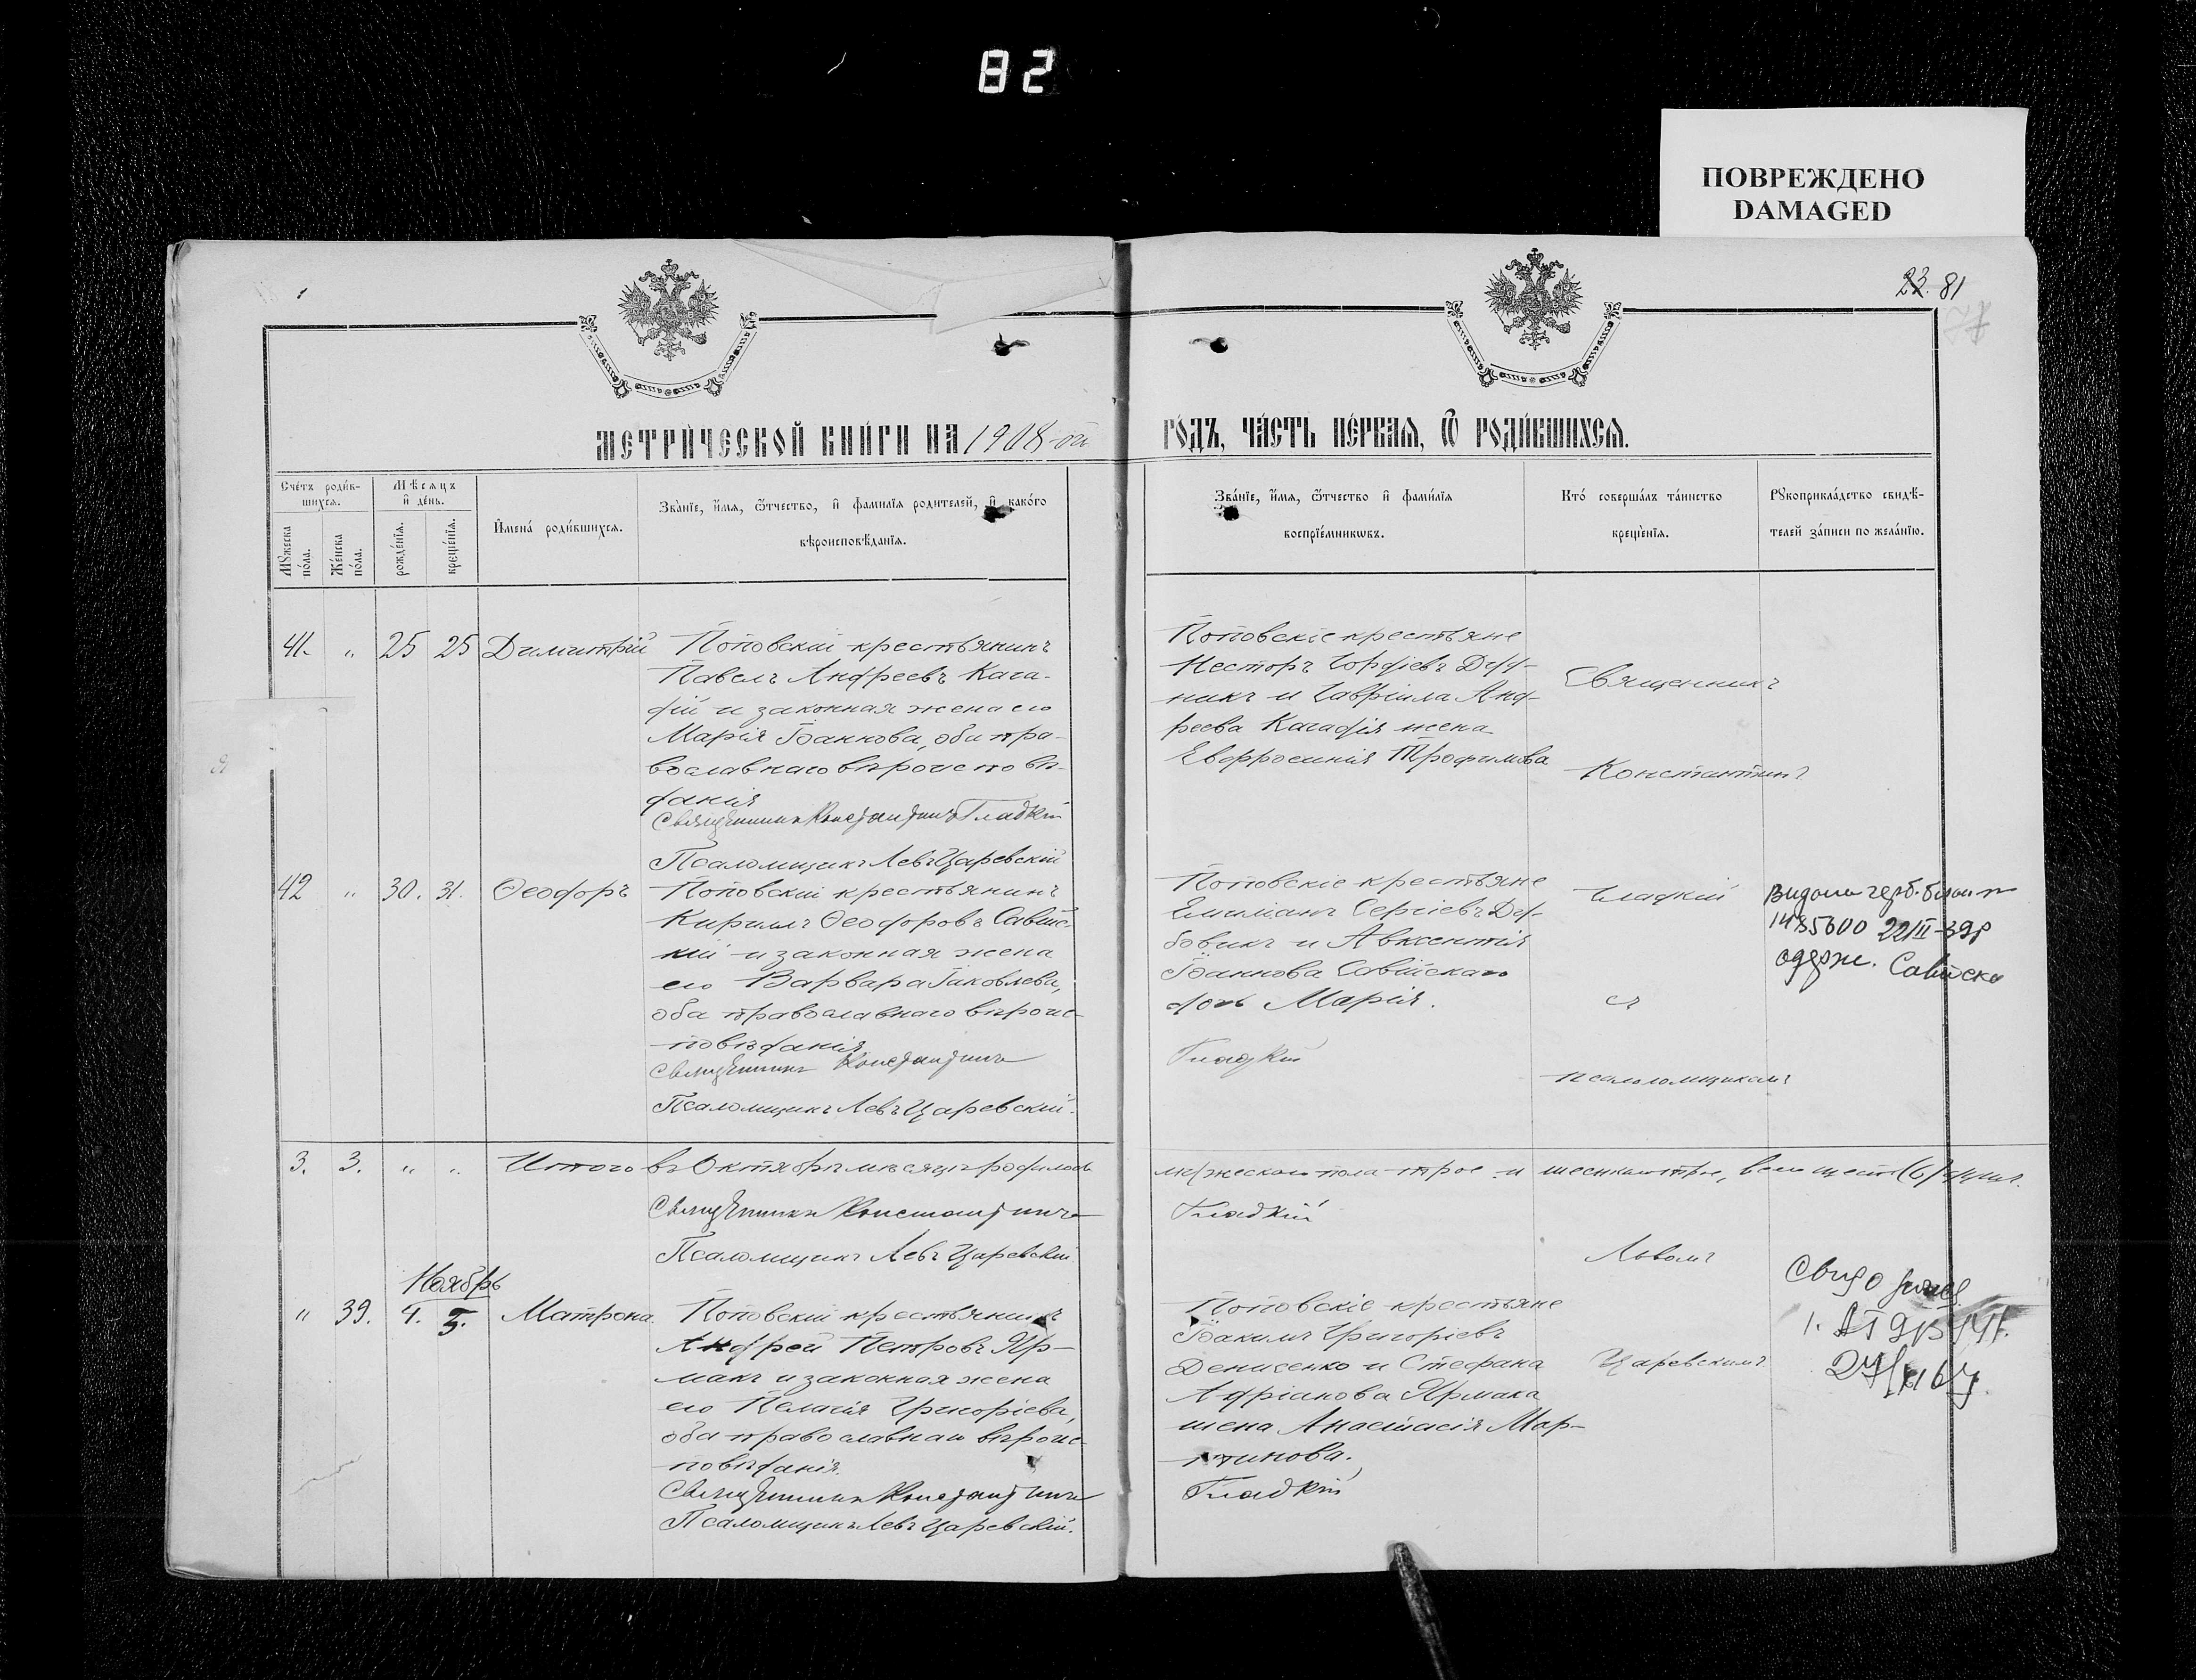 82
ПОВРЕЖДЕНО
DAMAGED
23. 81
МЕТРИ́ЧЕСКОЙ КНИ́ГИ НА 1908-ой
ГО́ДЪ, ЧА́СТЬ ПЕ́РВАЯ, Ѿ РОДИ́ВШИХСЯ.
Сче́тъ роди́в-
шихся.
Мѣсяцъ
и҆ де́нь.
Мꙋжеска
по́ла.
Же́нска
по́ла.
рожде́нїѧ.
креще́нїѧ.
И҆мена́ роди́вшихсѧ.
Зва́нїе, и҆́мѧ, ѻ҆́тчество, и҆ фамилїѧ родителей, и҆ како́го
вѣроисповѣ́данїѧ.
Зва́нїе, и҆́мѧ, ѻ҆́тчество и҆ фами́лїѧ
воспрїе́мникѡвъ.
Кто́ соверша́лъ та́инство
креще́нїѧ.
Рꙋкоприкла́дство свидѣ́-
телей за́писи по жела́нїю.
41. " 25 25 Димитрій
Поповскій крестьянинъ
Павелъ Андреевъ Кага-
дій и законная жена его
Марія Іоаннова, оба пра-
вославнаго вѣроисповѣ-
данія
Священникъ Константинъ Гладкій
Псаломщикъ Левъ Царевскій
Поповскіе крестьяне
Несторъ Гордіевъ
никъ и Гавріила Анд-
реева Кагадія жена
Евфросинія Трофимова
Священникъ
Константинъ
42 " 30. 31. Ѳеодоръ
Поповскій крестьянинъ
Кириллъ Ѳеодоровъ Савитс-
кій и законная жена
его Варвара Іаковлева,
оба православнаго вѣроис-
повѣданія
Священникъ Константинъ
Псаломщикъ Левъ Царевскій.
Поповскіе крестьяне
Емиліанъ Сергіевъ Ду-
бовикъ и Авксентія
Іоаннова Савитскаго
дочь Марія.
Гладкій
Гладкій
съ
псаломщикомъ
Видано герб.
1435600 22/II-39р
одерж. Савитско
3. 3. " " Итого въ Октябрѣ мѣсяцѣ родилось
мужескаго пола трое и женскаго трое, всего шесть (6) душъ.
Священникъ Константинъ
Гладкій
Псаломщикъ Левъ Царевскій
Львомъ
Ноябрь
" 39. 4. 5. Матрона.
Поповскій крестьянинъ
Андрей Петровъ Яр-
макъ и законная жена
его Пелагія Григоріева,
оба православнаго вѣроис-
повѣданія.
Священникъ Константинъ
Псаломщикъ Левъ Царевскій.
Поповскіе крестьяне
Іоакимъ Григоріевъ
Денисенко и Стефана
Адріанова Ярмака
жена Анастасія Мар-
тинова.
Гладкій
Царевскимъ